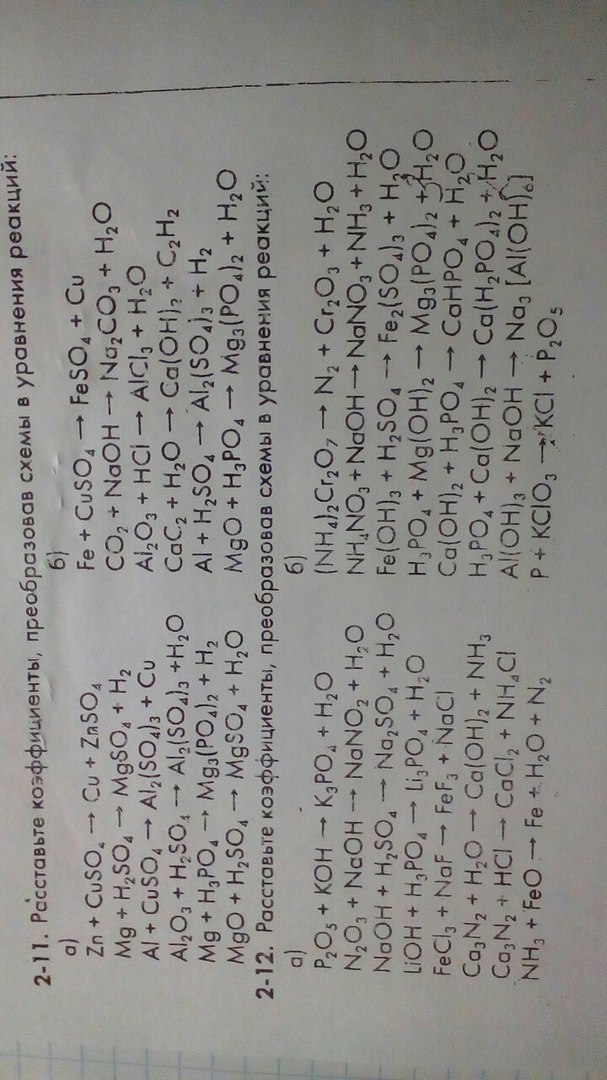 2-11. Расставьте коэффициенты, преобразовав схемы в уравнения реакций:
а)
Zn + CuSO₄ → Cu + ZnSO₄
Mg + H₂SO₄ → MgSO₄ + H₂
Al + CuSO₄ → Al₂(SO₄)₃ + Cu
Al₂O₃ + H₂SO₄ → Al₂(SO₄)₃ + H₂O
Mg + H₃PO₄ → Mg₃(PO₄)₂ + H₂
MgO + H₂SO₄ → MgSO₄ + H₂O
б)
Fe + CuSO₄ → FeSO₄ + Cu
CO₂ + NaOH → Na₂CO₃ + H₂O
Al₂O₃ + HCl → AlCl₃ + H₂O
CaC₂ + H₂O → Ca(OH)₂ + C₂H₂
Al + H₂SO₄ → Al₂(SO₄)₃ + H₂
MgO + H₃PO₄ → Mg₃(PO₄)₂ + H₂O
2-12. Расставьте коэффициенты, преобразовав схемы в уравнения реакций:
а)
P₂O₅ + KOH → K₃PO₄ + H₂O
N₂O₃ + NaOH → NaNO₂ + H₂O
NaOH + H₂SO₄ → Na₂SO₄ + H₂O
LiOH + H₃PO₄ → Li₃PO₄ + H₂O
FeCl₃ + NaF → FeF₃ + NaCl
Ca₃N₂ + H₂O → Ca(OH)₂ + NH₃
Ca₃N₂ + HCl → CaCl₂ + NH₄Cl
NH₃ + FeO → Fe + H₂O + N₂
б)
(NH₄)₂Cr₂O₇ → N₂ + Cr₂O₃ + H₂O
NH₄NO₃ + NaOH → NaNO₃ + NH₃ + H₂O
Fe(OH)₃ + H₂SO₄ → Fe₂(SO₄)₃ + H₂O
H₃PO₄ + Mg(OH)₂ → Mg₃(PO₄)₂ + H₂O
Ca(OH)₂ + H₃PO₄ → CaHPO₄ + H₂O
H₃PO₄ + Ca(OH)₂ → Ca(H₂PO₄)₂ + H₂O
Al(OH)₃ + NaOH → Na₃[Al(OH)₆]
P + KClO₃ → KCl + P₂O₅